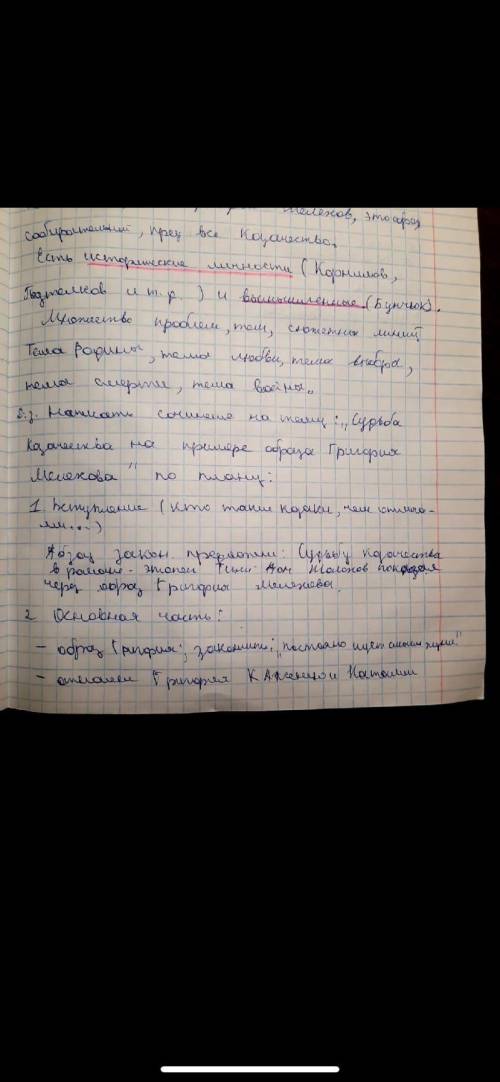 Мелехов, это образ
собирательный, през все Казачество.
Есть исторические личности (Корнилов,
Подтёлков и т.д.) и вымышленные (Бунчюк).
Множество проблем, тем, сюжетных линий
Тема Родины, тема любви, тема выбора,
тема смерти, тема войны.
Д.з. Написать сочинение на тему: „Судьба
Казачества на примере образа Григория
Мелехова" по плану:
1. Вступление (кто такие казаки, чем отлича-
ли...)
Абзац закон. предложен: Судьбу казачества
в романе-эпопеи Тихи Дон Шолохов показал
через образ Григория Мелехова.
2 Основная часть:
- образ Григория; закончить: „постояно ищет смысл жизни"
- отношен Григория к Аксиньи Натальи